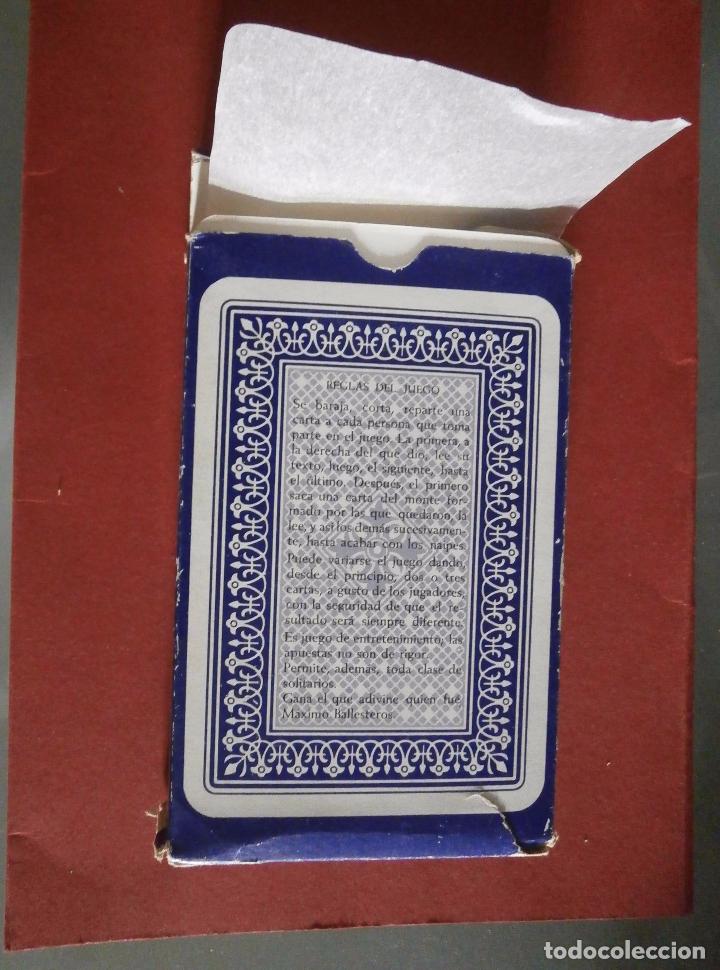 REGLAS DEL JUEGO
Se baraja, corta, reparte una
carta a cada persona que toma
parte en el juego. La primera, a
la derecha del que dio, lee su
texto, luego, el siguiente, hasta
el último. Después, el primero
saca una carta del monte for-
mado por las que quedaron, la
lee, y así los demás sucesivamen-
te, hasta acabar con los naipes.
Puede variarse el juego dando,
desde el principio, dos o tres
cartas, a gusto de los jugadores,
con la seguridad de que el re-
sultado será siempre diferente.
Es juego de entretenimiento; las
apuestas no son de rigor.
Permite, además, toda clase de
solitarios.
Gana el que adivine quien fue
Máximo Ballesteros.
todocoleccion